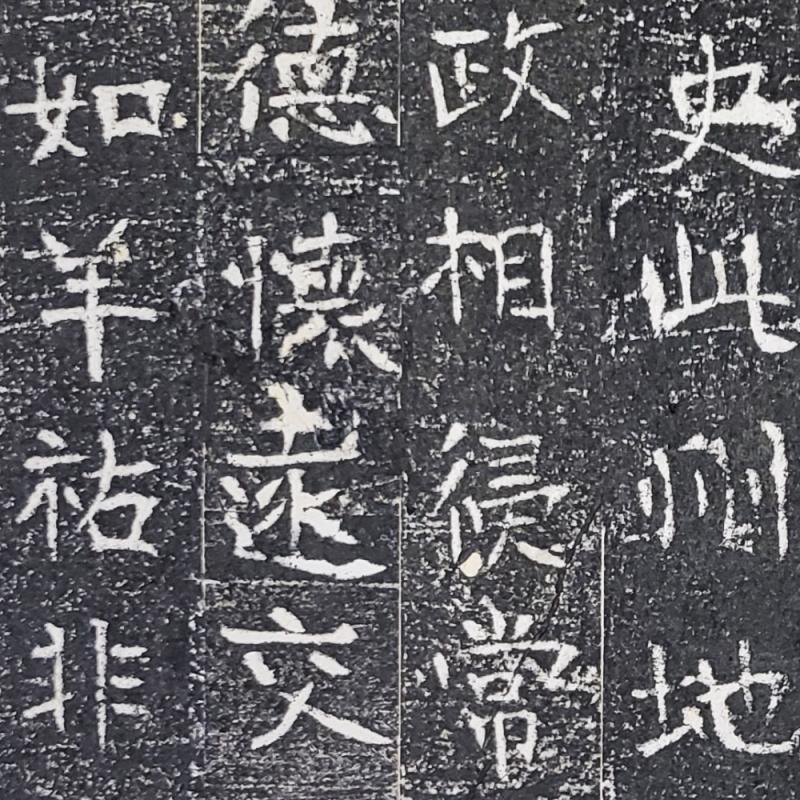 史此州地
政相
德懷遠交
如羊祐非